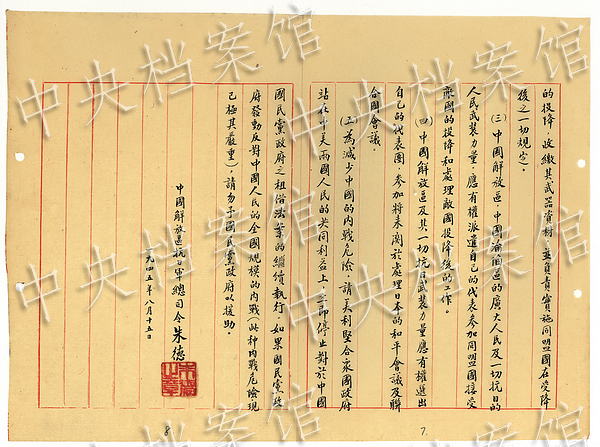 的投降，收繳其武器資材，並負責實施同盟國在受降
後之一切規定。
(三)中國解放區，中國淪陷區的廣大人民及一切抗日的
人民武裝力量，應有權派遣自己的代表參加同盟國接受
敵國的投降和處理敵國投降後的工作。
(四)中國解放區及其一切抗日武裝力量應有權選出
自己的代表團，參加將來關於處理日本的和平會議及聯
合國會議。
(五)為減少中國的內戰危險，請美利堅合衆國政府
站在中美兩國人民的共同利益上，立即停止對於中國
國民黨政府之租借法案的繼續執行。如果國民黨政
府發動反對中國人民的全國規模的內戰(此種內戰危險現
已極其嚴重)，請勿予國民黨政府以援助。
中國解放區抗日軍總司令朱德
一九四五年八月十五日
7.
8.
中央档案馆
中央档案馆
中央档案馆
中央档案馆